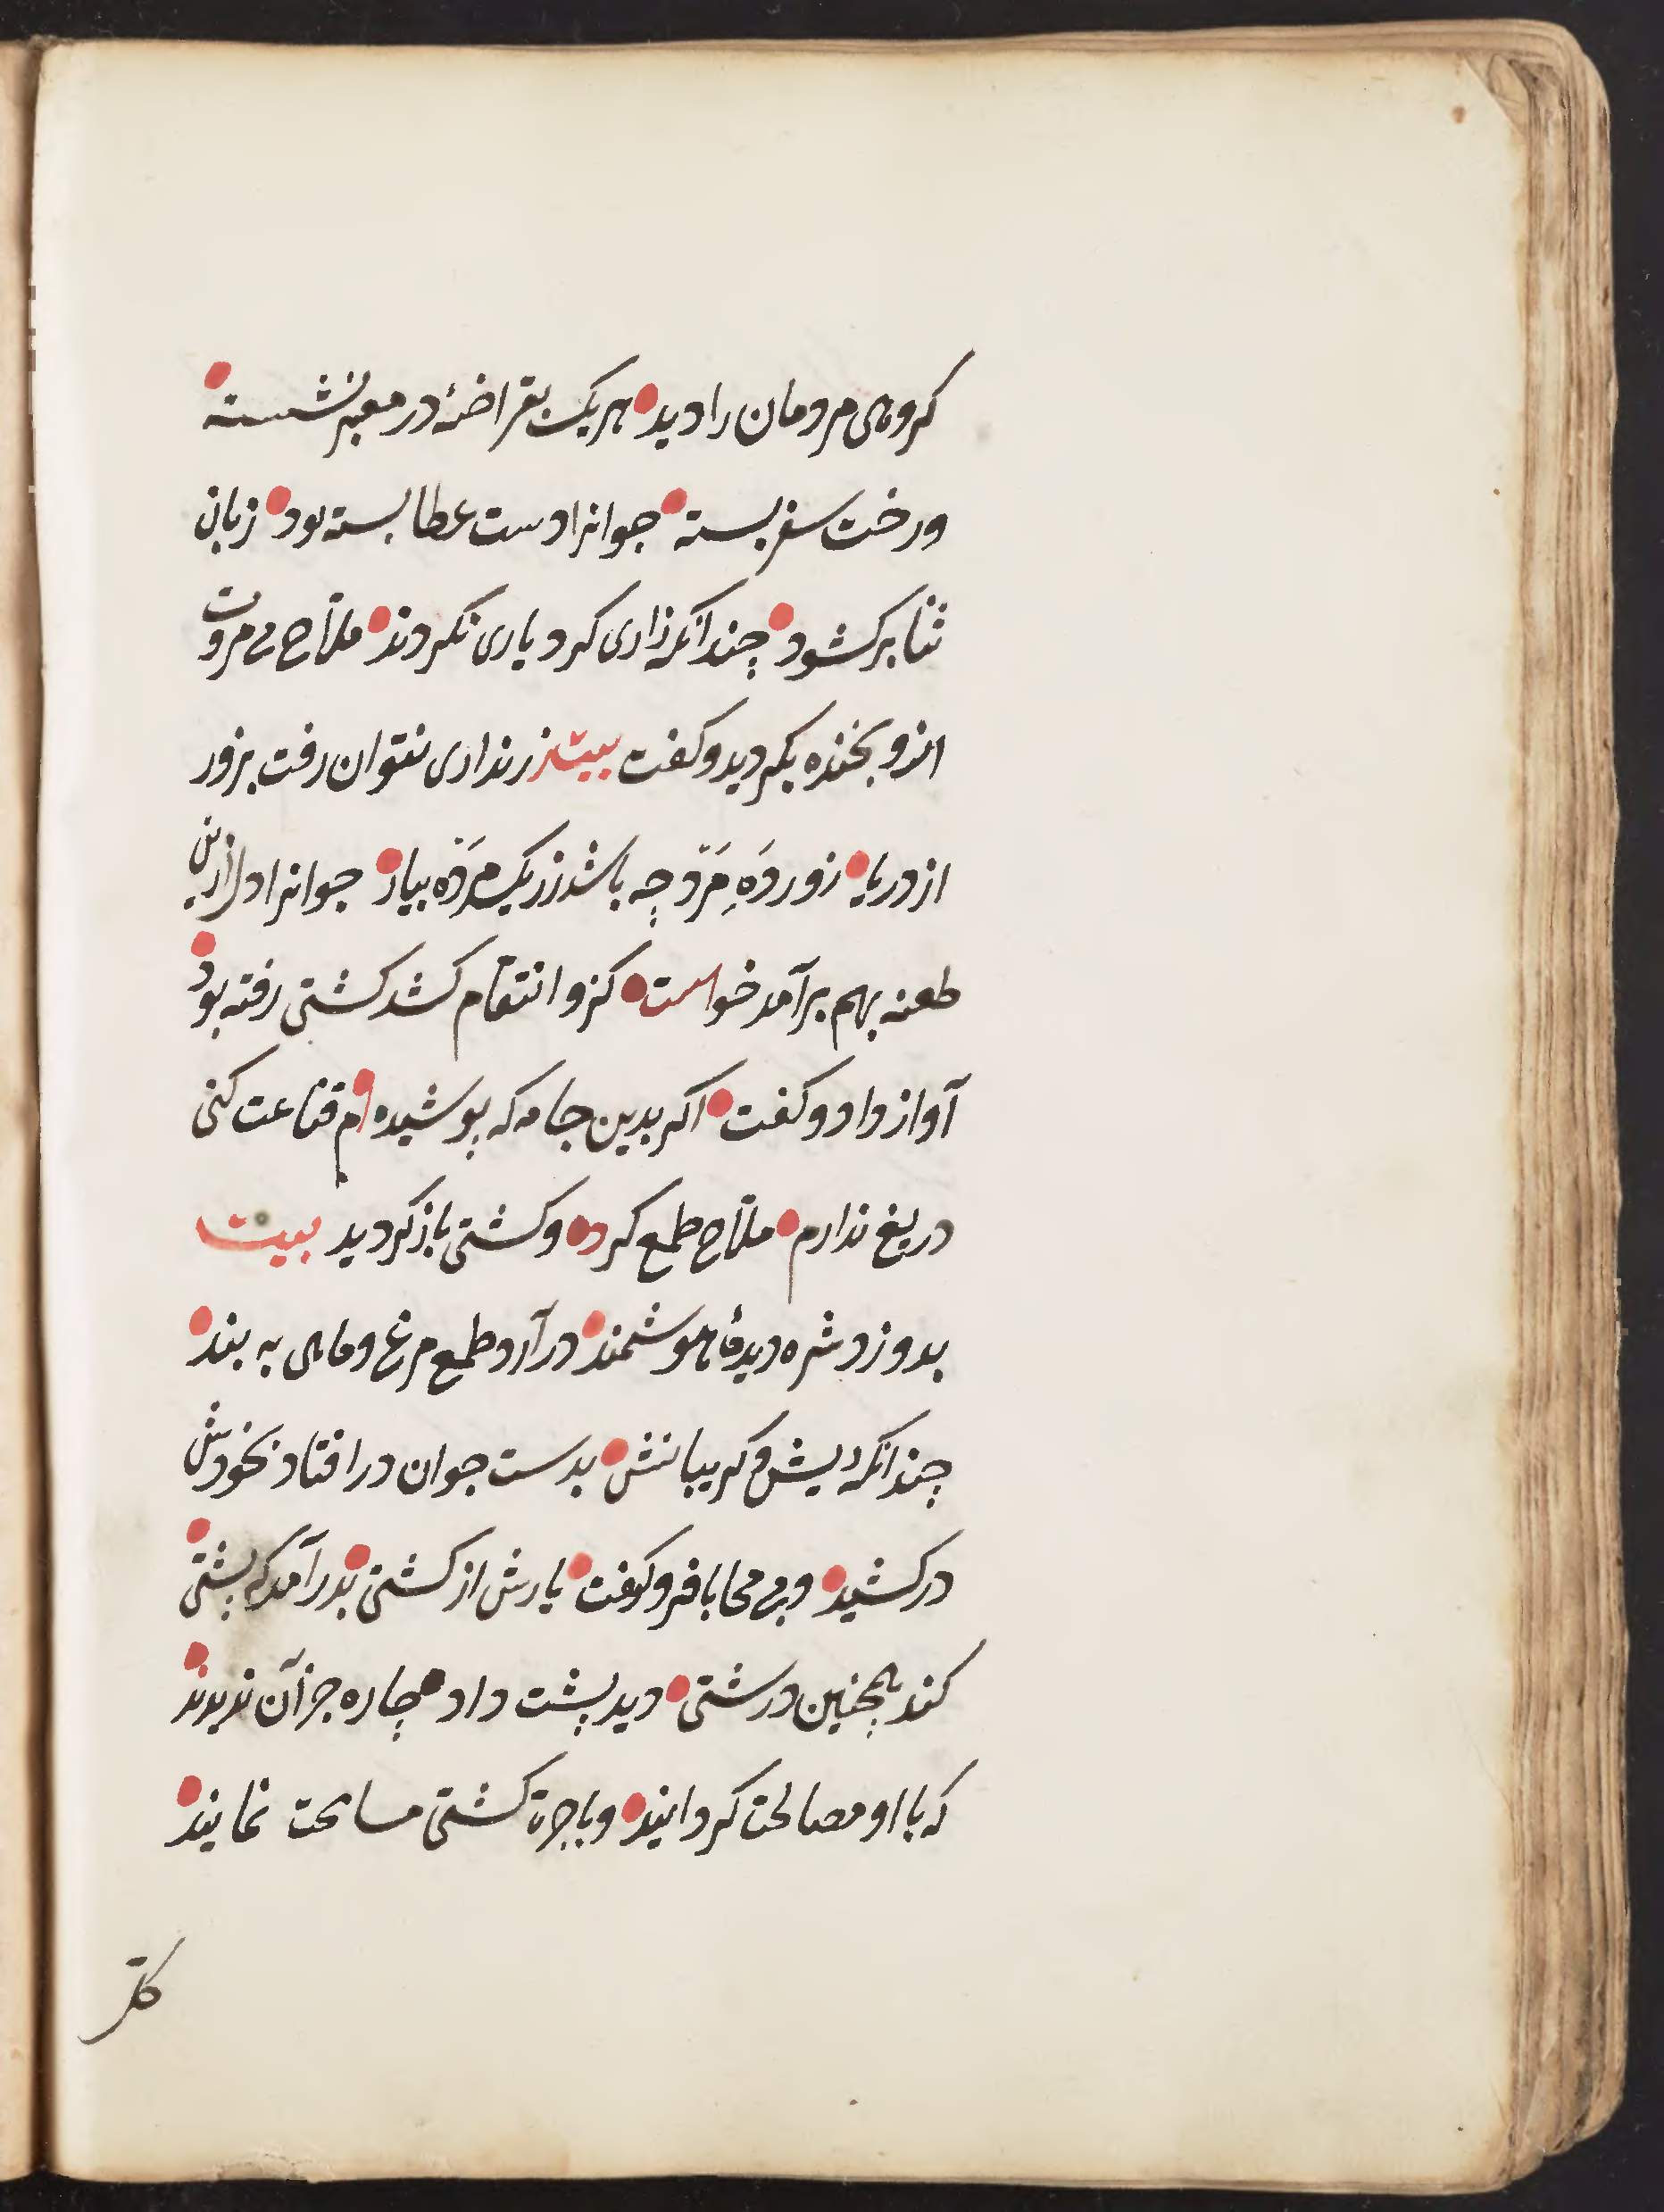 کروهی مردمان را دید هر یک بقراضهٔ در معبر نشسته
ورخت سفر بسته جوانرا دست عطا بسته بود زبان
ثنا برکشود چندانکه زاری کرد یاری نکردند ملّاح بی مروت
ازو بخنده بکردید وکفت بیت زر نداری نتوان رفت بزور
از دریا زور دَهِ مَرّدچه باشد زر یک مَرّده بیار جوانرا دل ازین
طعنه بهم برآمد خواست کزو انتقام کشد کشتی رفته بود
آواز داد وکفت اکر بدین جامه که پوشیده ام قناعت کنی
دریغ ندارم ملّاح طمع کرد وکشتی باز کردید بیت
بدوزد شره دیدهٔ هوشمند درآرد طمع مرغ وماهی به بند
چندانکه ریش وکریبانش بدست جوان درافتاد بخودش
درکشید وبی محابا فروکوفت یارش از کشتی بدرآمد که پشتی
کند همچنین درشتی دید پشت داد چاره جز آن ندیدند
که با او مصالحت کردانید وباجرت کشتی مسامحت نمایند
کلّ